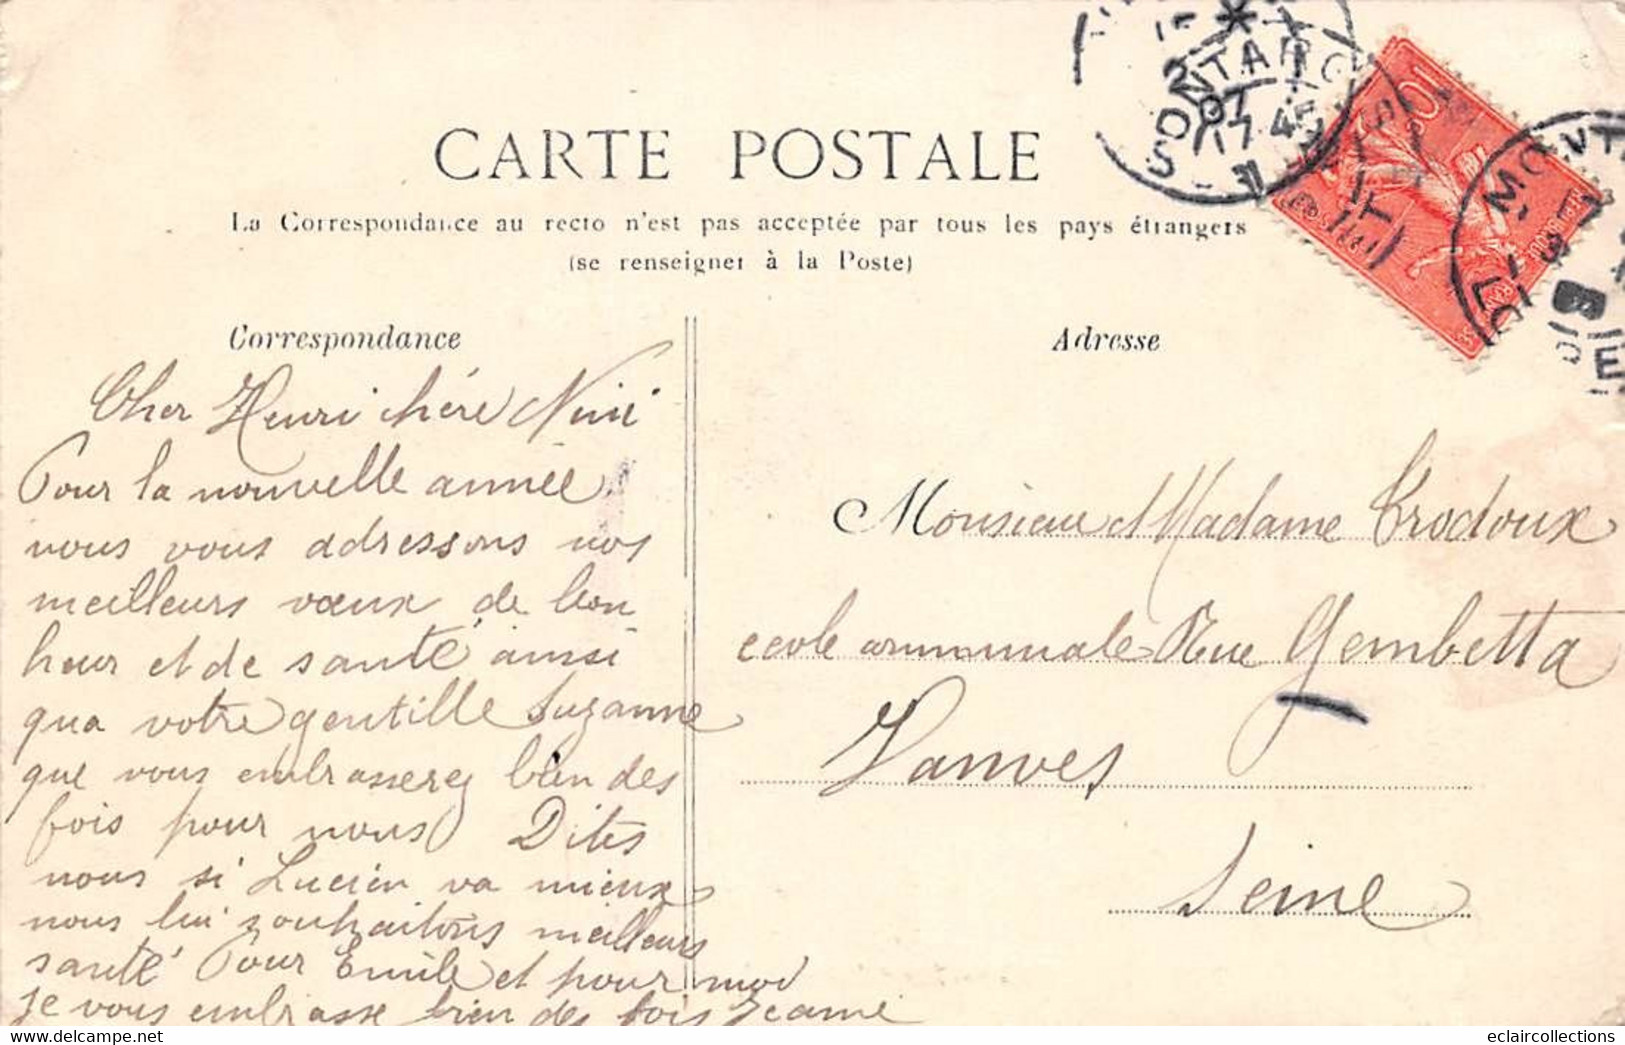 CARTE POSTALE
La Correspondance au recto n'est pas acceptée par tous les pays étrangers
(se renseigner à la Poste)
Correspondance
Cher Henri chére Nini
Pour la nouvelle année
nous vous adressons nos
meilleurs vœux de bon
heur et de santé ainsi
qua votre gentille Suzanne
que vous embrasserez bien des
fois pour nous Dites
nous si Lucien va mieux
nous lui souhaitons meilleurs
santé Pour Emile et pour moi
Je vous embrasse bien des fois Jeanne
Adresse
Monsieur et Madame Trodoux
ecole communale Rue Gembetta
Vanves
Seine
10
MONT
eclaircollections